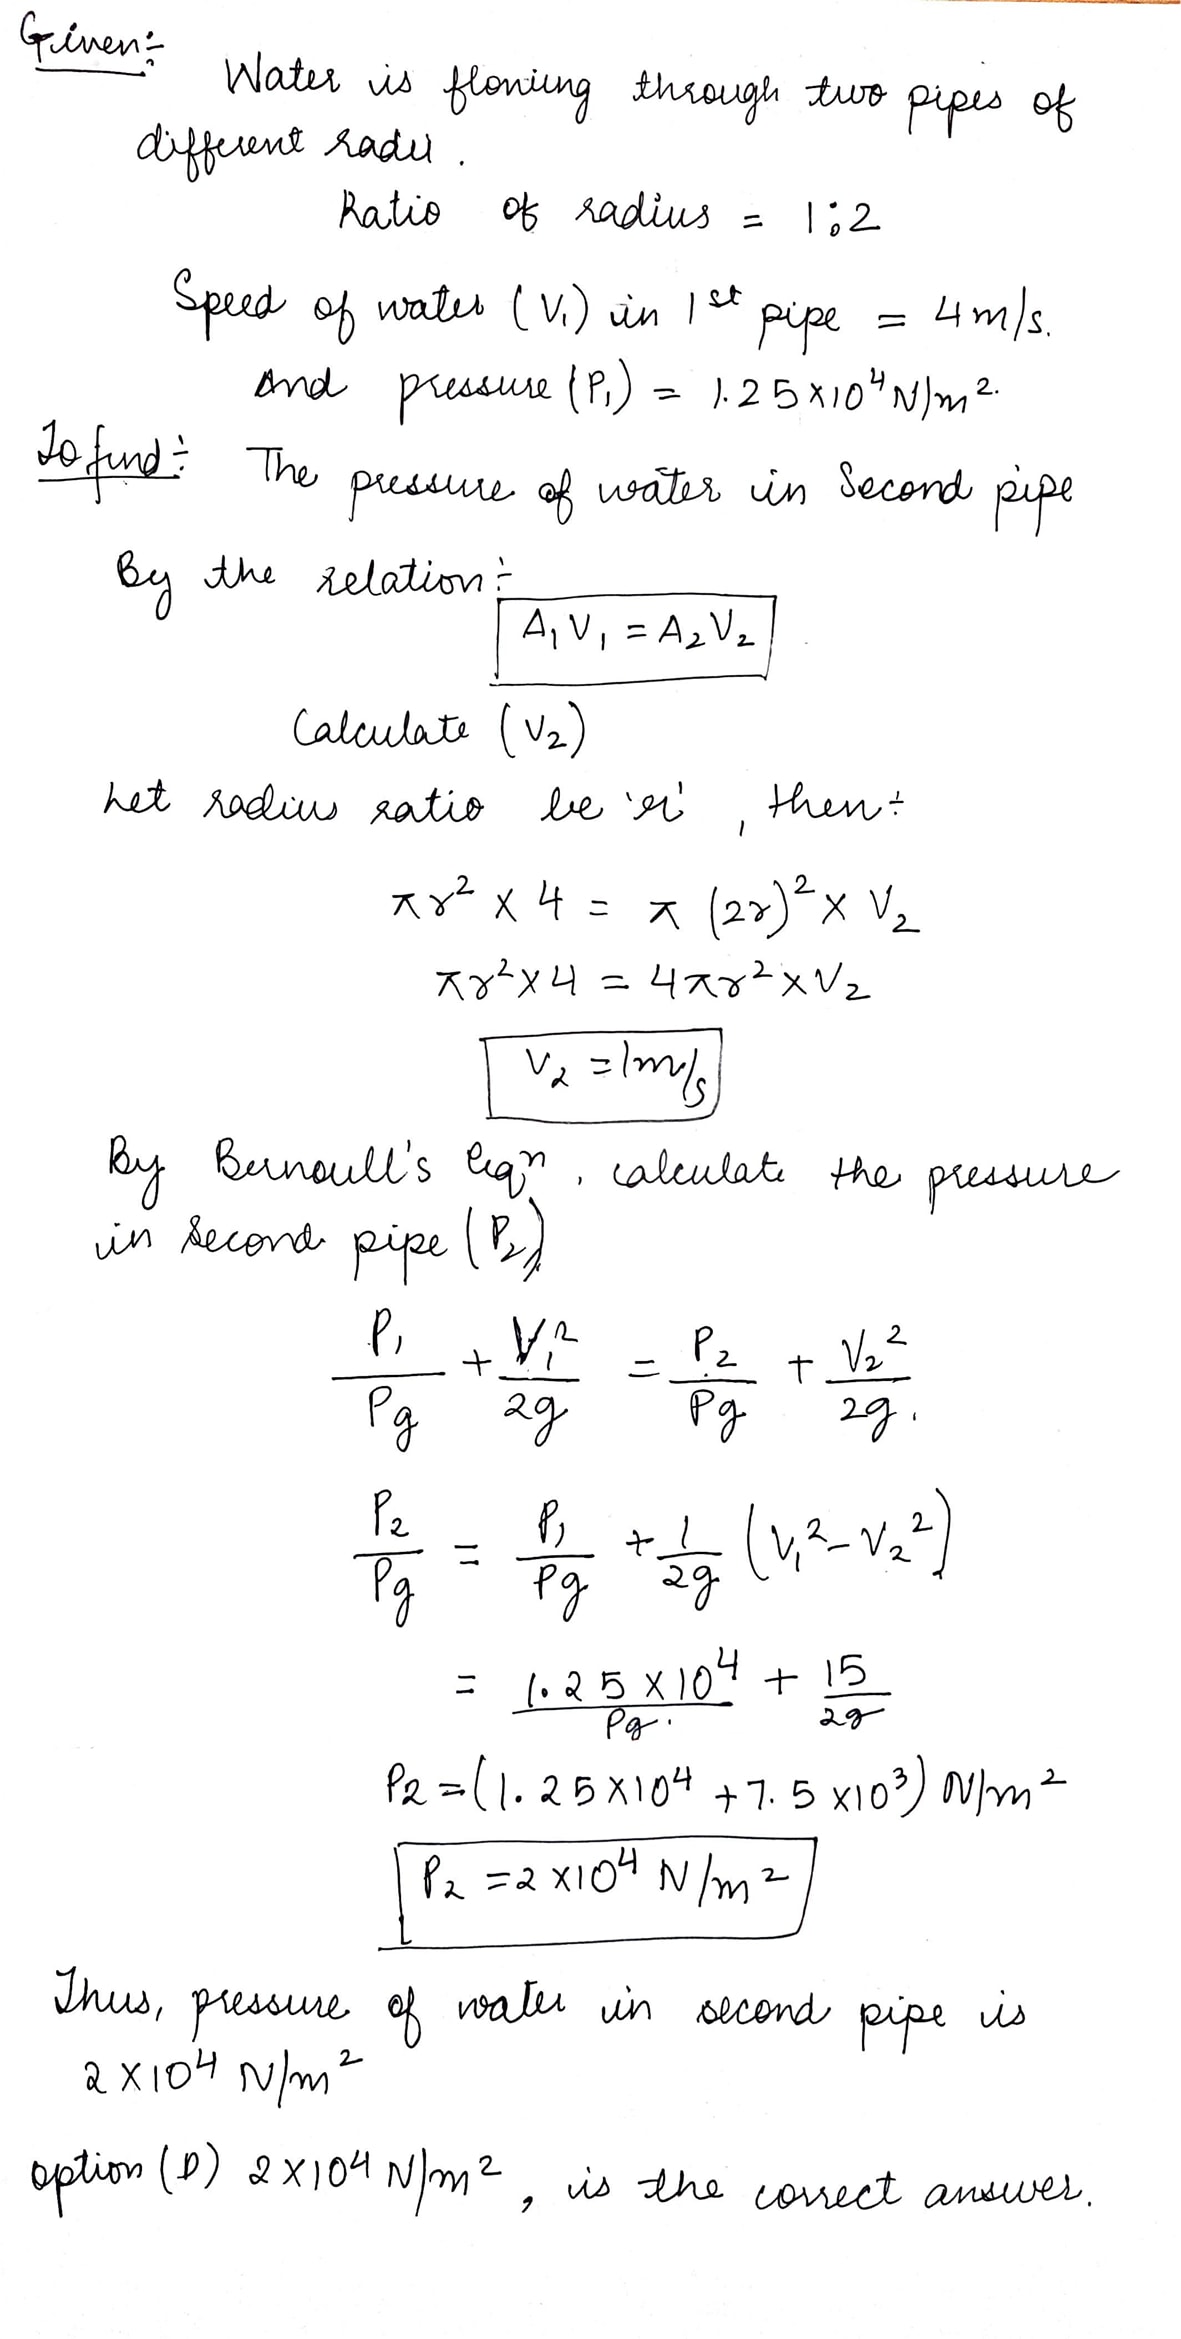 Given:-
Water is flowing through two pipes of
different radii.
Ratio of radius = 1:2
Speed of water (V₁) in 1st pipe = 4m/s.
And pressure (P₁) = 1.25×10⁴ N/m².
To find:- The pressure of water in Second pipe
By the relation:-
A₁V₁ = A₂V₂
Calculate (V₂)
Let radius ratio be 'r', then:-
πr² × 4 = π (2r)² × V₂
πr² × 4 = 4πr² × V₂
V₂ = 1m/s
By Bernoull's eqn, calculate the pressure
in Second pipe (P₂)
P₁/Pg + V₁²/2g = P₂/Pg + V₂²/2g.
P₂/Pg = P₁/Pg + 1/2g (V₁² - V₂²)
= 1.25×10⁴/Pg. + 15/2g
P₂ = (1.25×10⁴ + 7.5×10³) N/m²
P₂ = 2×10⁴ N/m²
Thus, pressure of water in second pipe is
2×10⁴ N/m²
option (D) 2×10⁴ N/m², is the correct answer.